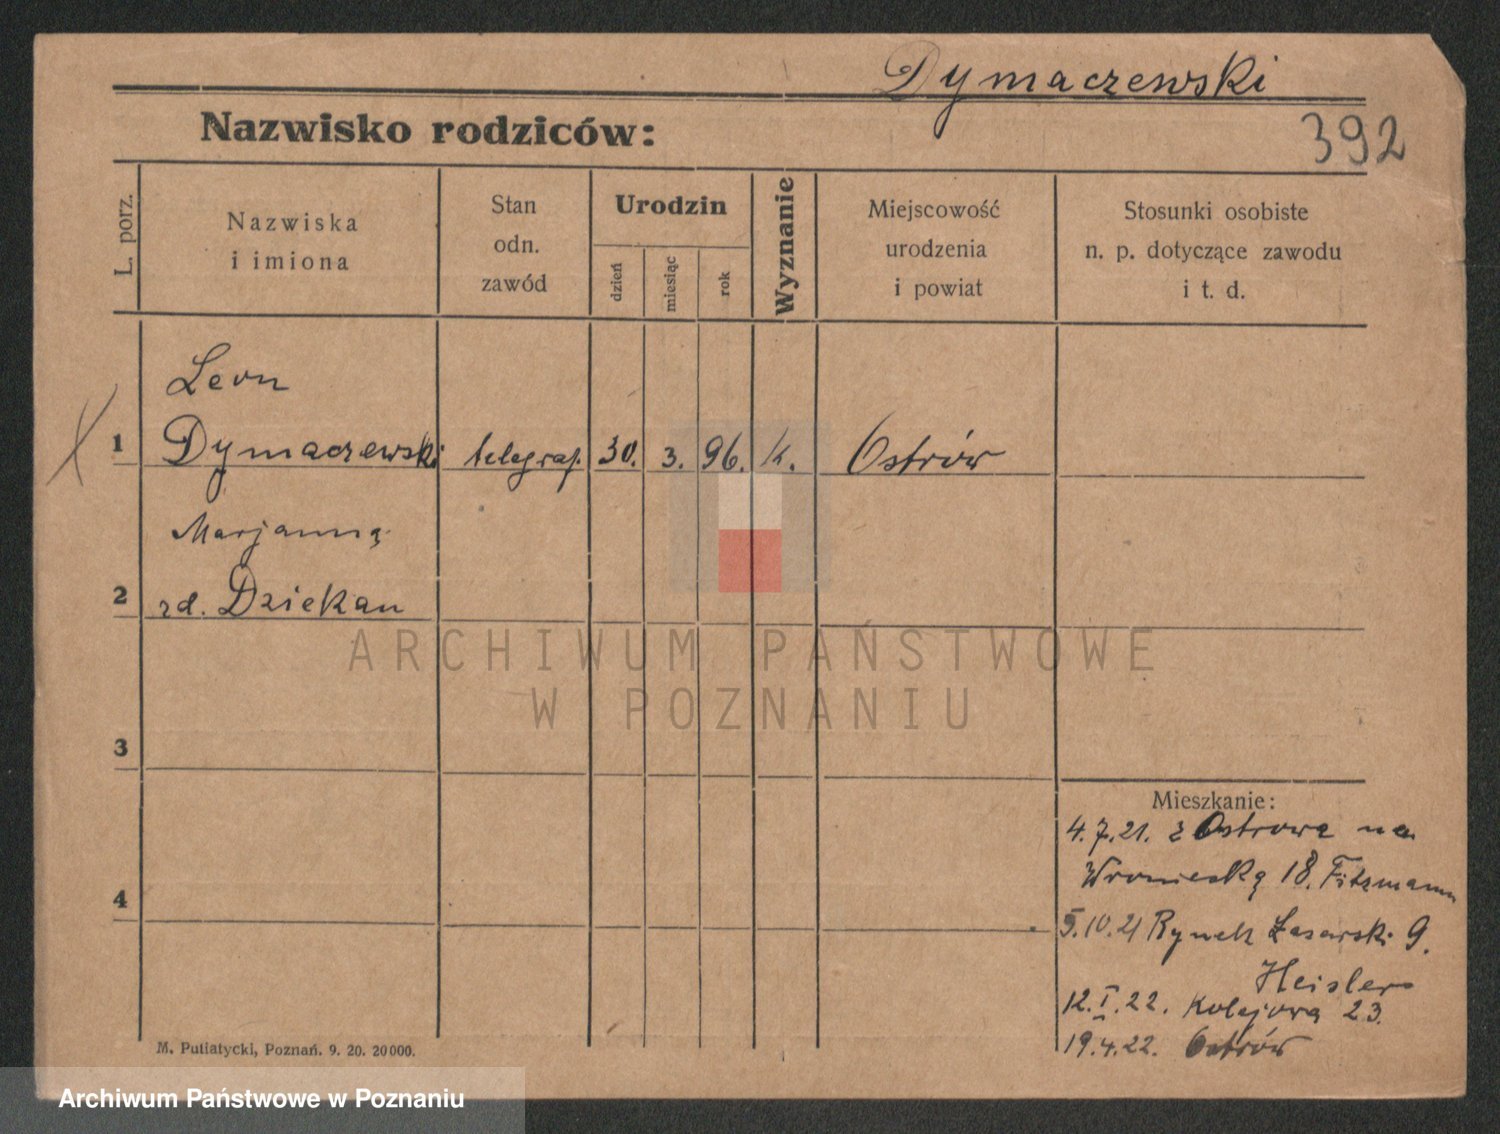 Dymaczewski
Nazwisko rodziców:
392
L. porz.
Nazwiska
i imiona
Stan
odn.
zawód
Urodzin
dzień
miesiąc
rok
Wyznanie
Miejscowość
urodzenia
i powiat
Stosunki osobiste
n. p. dotyczące zawodu
i t. d.
Leon
1 Dymaczewski telegraf. 30. 3. 96. k. Ostrów
Marjanna
2 zd. Dziekan
3
4
Mieszkanie:
4.7.21. z Ostrowa na
Wroniecką 18. Fitzmann
5.10.21 Rynek Łazarski 9.
Heisler
12.I.22. Kolejowa 23.
19.4.22. Ostrów
M. Putiatycki, Poznań. 9. 20. 20000.
ARCHIWUM PAŃSTWOWE
W POZNANIU
Archiwum Państwowe w Poznaniu